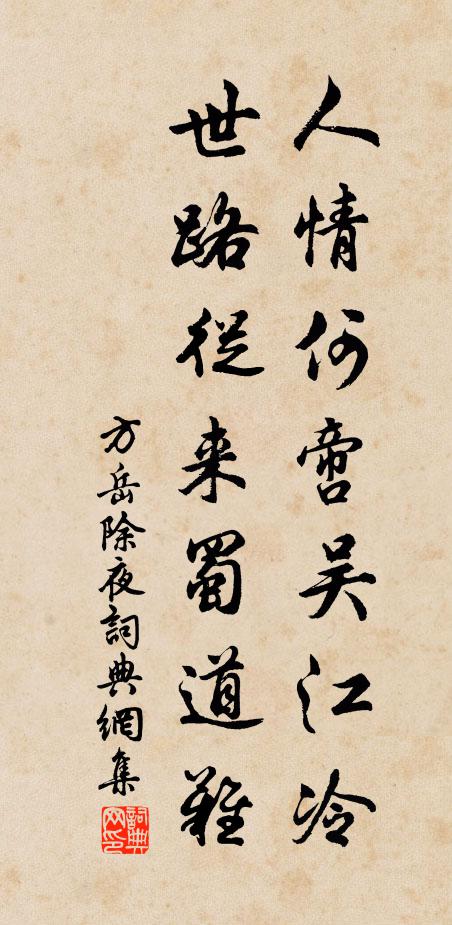 人情何啻吴江冷
世路從来蜀道難
方岳除夜詞典網集
詞典網印